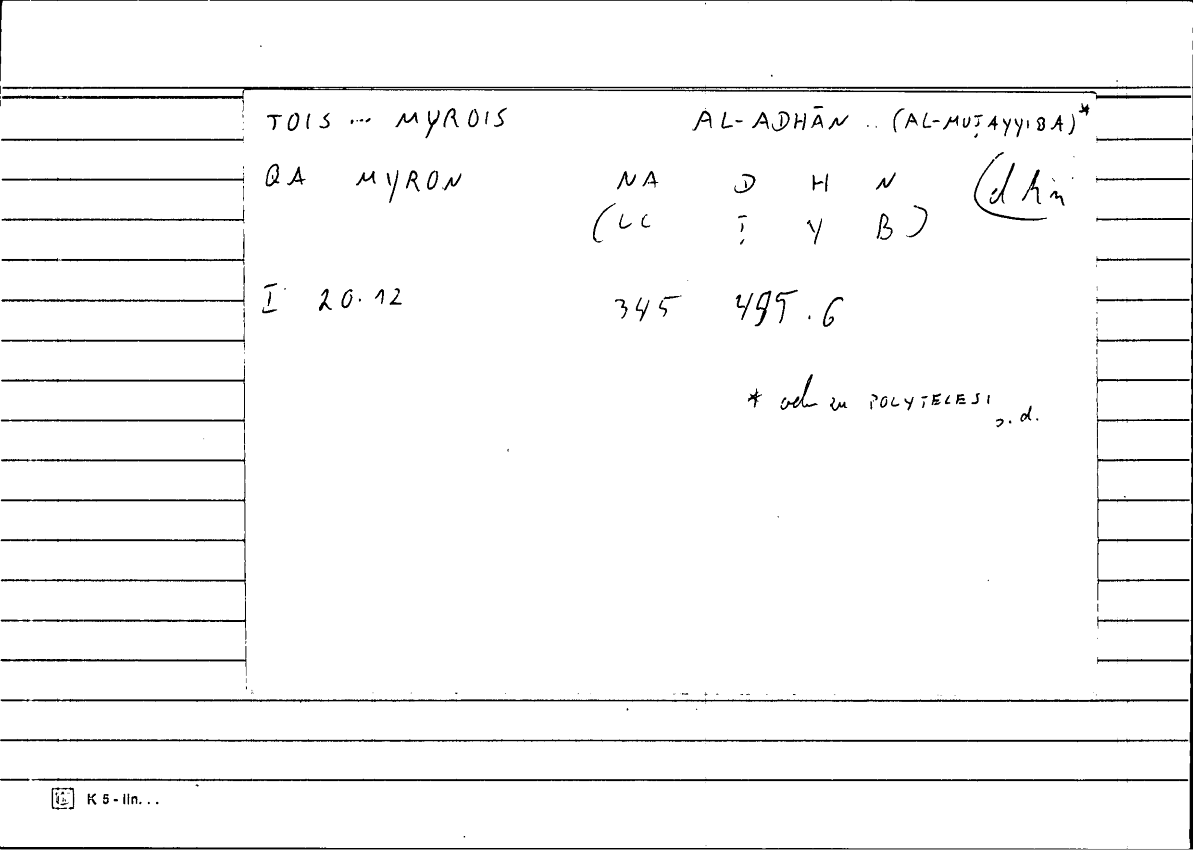 TOIS ... MYROIS AL-ADHĀN .. (AL-MUṬAYYIBA)*
QA MYRON NA D H N (dhn
(LC Ṭ Y B)
I 20.12 345 495.6
* oder zu POLYTELESI
s.d.
K 5 - lin. . .